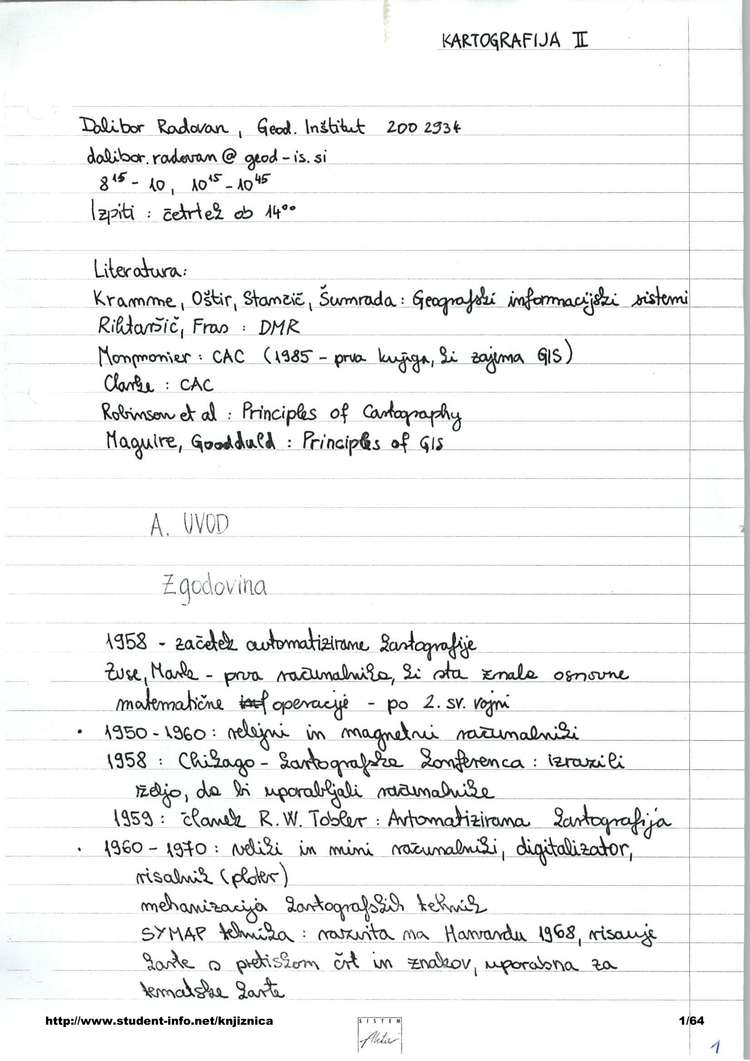 KARTOGRAFIJA II
Dalibor Radovan, Geod. Inštitut 200 2934
dalibor.radovan @ geod-is.si
8¹⁵ - 10, 10¹⁵ - 10⁴⁵
Izpiti : četrtek ob 14ºº
Literatura:
Kramme, Oštir, Stančič, Šumrada : Geografski informacijski sistemi
Rihtaršič, Fras : DMR
Monmonier : CAC (1985 - prva knjiga, ki zajema GIS)
Clarke : CAC
Robinson et al : Principles of Cartography
Maguire, Goodduld : Principles of GIS
A. UVOD
Zgodovina
1958 - začetek avtomatizirane kartografije
Zuse, Mark - prva računalnika, ki sta znala osnovne
matematične operacije - po 2. sv. vojni
• 1950 - 1960 : relejni in magnetni računalniki
1958 : Chikago - kartografska konferenca : izrazili
željo, da bi uporabljali računalnike
1959 : članek R.W. Tobler : Avtomatizirana kartografija
• 1960 - 1970 : veliki in mini računalniki, digitalizator,
risalnik (ploter)
mehanizacija kartografskih tehnik
SYMAP tehnika : razvita na Harvardu 1968, risanje
karte s pretiskom črt in znakov, uporabna za
tematske karte
http://www.student-info.net/knjiznica
SISTEM
1/64
1